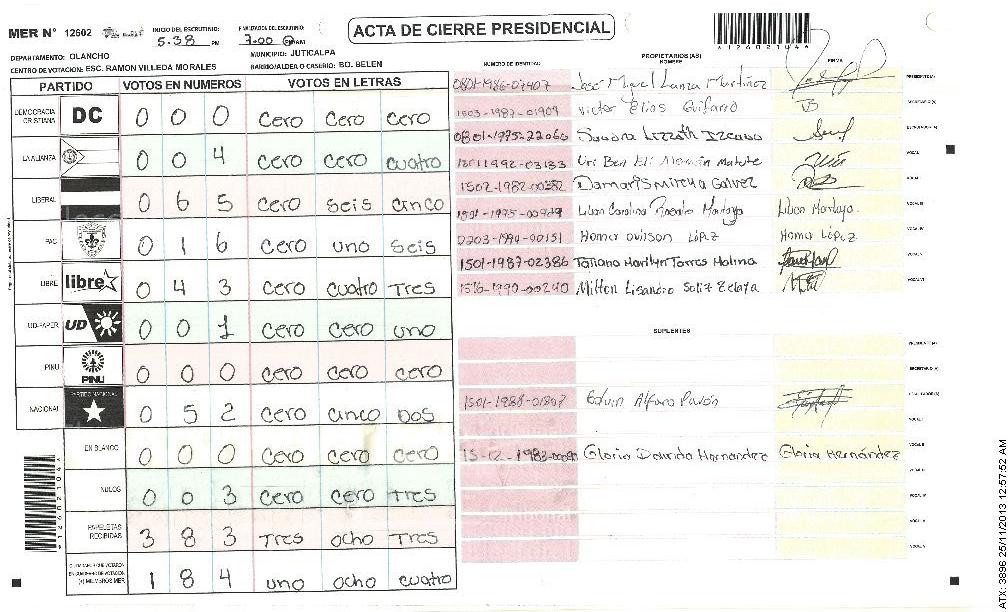 MER N° 12602
INICIO DEL ESCRUTINIO:
5:38 PM
FINALIZACION DEL ESCRUTINIO:
7:00 AM
ACTA DE CIERRE PRESIDENCIAL
*12602104*
DEPARTAMENTO: OLANCHO
MUNICIPIO: JUTICALPA
CENTRO DE VOTACION: ESC. RAMON VILLEDA MORALES
BARRIO/ALDEA O CASERIO: BO. BELEN
PARTIDO VOTOS EN NUMEROS VOTOS EN LETRAS
DEMOCRACIA CRISTIANA DC 0 0 0 cero cero cero
LA ALIANZA 0 0 4 cero cero cuatro
LIBERAL 0 6 5 cero seis cinco
PAC 0 1 6 cero uno seis
LIBRE libre 0 4 3 cero cuatro tres
UD-FAPER UD 0 0 1 cero cero uno
PINU PINU 0 0 0 cero cero cero
NACIONAL PARTIDO NACIONAL 0 5 2 cero cinco dos
EN BLANCO 0 0 0 cero cero cero
NULOS 0 0 3 cero cero tres
PAPELETAS RECIBIDAS 3 8 3 tres ocho tres
1 8 4 uno ocho cuatro
PROPIETARIOS (AS)
NUMERO DE IDENTIDAD NOMBRE FIRMA
0801-1986-07407 José Miguel Lanza Martínez PRESIDENTE(A)
1503-1987-01909 Victor Elias Guifarro SECRETARIO(A)
0801-1995-22060 Sandra Lizzeth ESCRUTADOR(A)
Uri Ben Eli Matute VOCAL I
1502-1982-00382 Damaris Mirella Galvez VOCAL II
Lilian Carolina Rosales Montoya Lilian Montoya VOCAL III
0203-1994-00151 Homer Ovilson López Homer López VOCAL IV
1501-1987-02386 Tatiana Marilyn Torres Molina VOCAL V
1516-1990-00290 Milton Lisandro Soliz Zelaya VOCAL VI
SUPLENTES
PRESIDENTE(A)
SECRETARIO(A)
Edwin Alfaro Pavón ESCRUTADOR(A)
VOCAL I
Gloria Hernandez Gloria Hernández VOCAL II
VOCAL III
VOCAL IV
VOCAL V
VOCAL VI
*12602104*
ATX: 3896 25/11/2013 12:57:52 AM